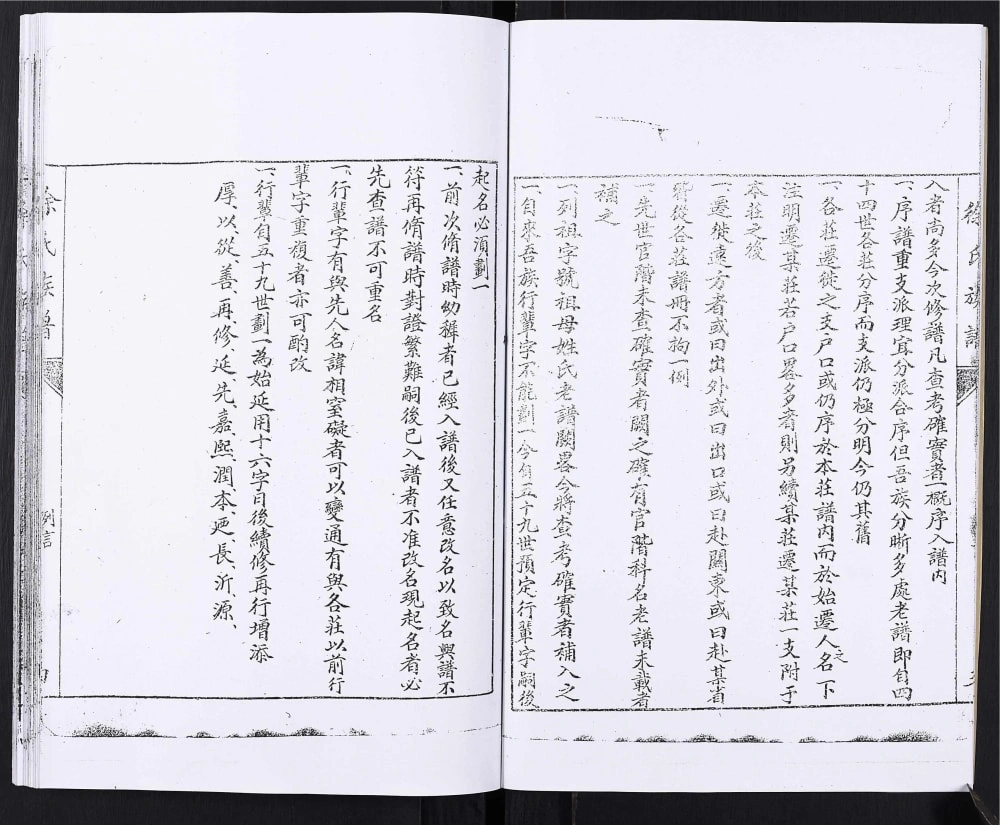 徐氏族譜
入者尚多今次修譜凡查考確實者一概序入譜內
一、序譜重支派理宜分派合序但吾族分晰多處老譜即自四
十四世各莊分序而支派仍極分明今仍其舊
一、各莊遷徙之支戶口或仍序於本莊譜內而於始遷人名下之
注明遷某莊若戶口畧多者則另續某莊遷某莊一支附于
本莊之後
一、遷徙遠方者或曰出外或曰出口或曰赴關東或曰赴某省
將從各莊譜冊不拘一例
一、先世官階未查確實者闕之確有官階科名老譜未載者
補之
一、列祖字號祖母姓氏老譜闕畧今將查考確實者補入之
一、自來吾族行輩字不能劃一今自五十九世預定行輩字嗣後
起名必須劃一
一、前次脩譜時幼穉者已經入譜後又任意改名以致名與譜不
符再脩譜時對證繁難嗣後已入譜者不准改名現起名者必
先查譜不可重名
一、行輩字有與先人名諱相窒礙者可以變通有與各莊以前行
輩字重復者亦可酌改
一、行輩自五十九世劃一為始延用十六字日後續修再行增添
厚、以、從、善、再、修、延、先、嘉、熙、潤、本、延、長、沂、源、
徐氏族譜
例言
四